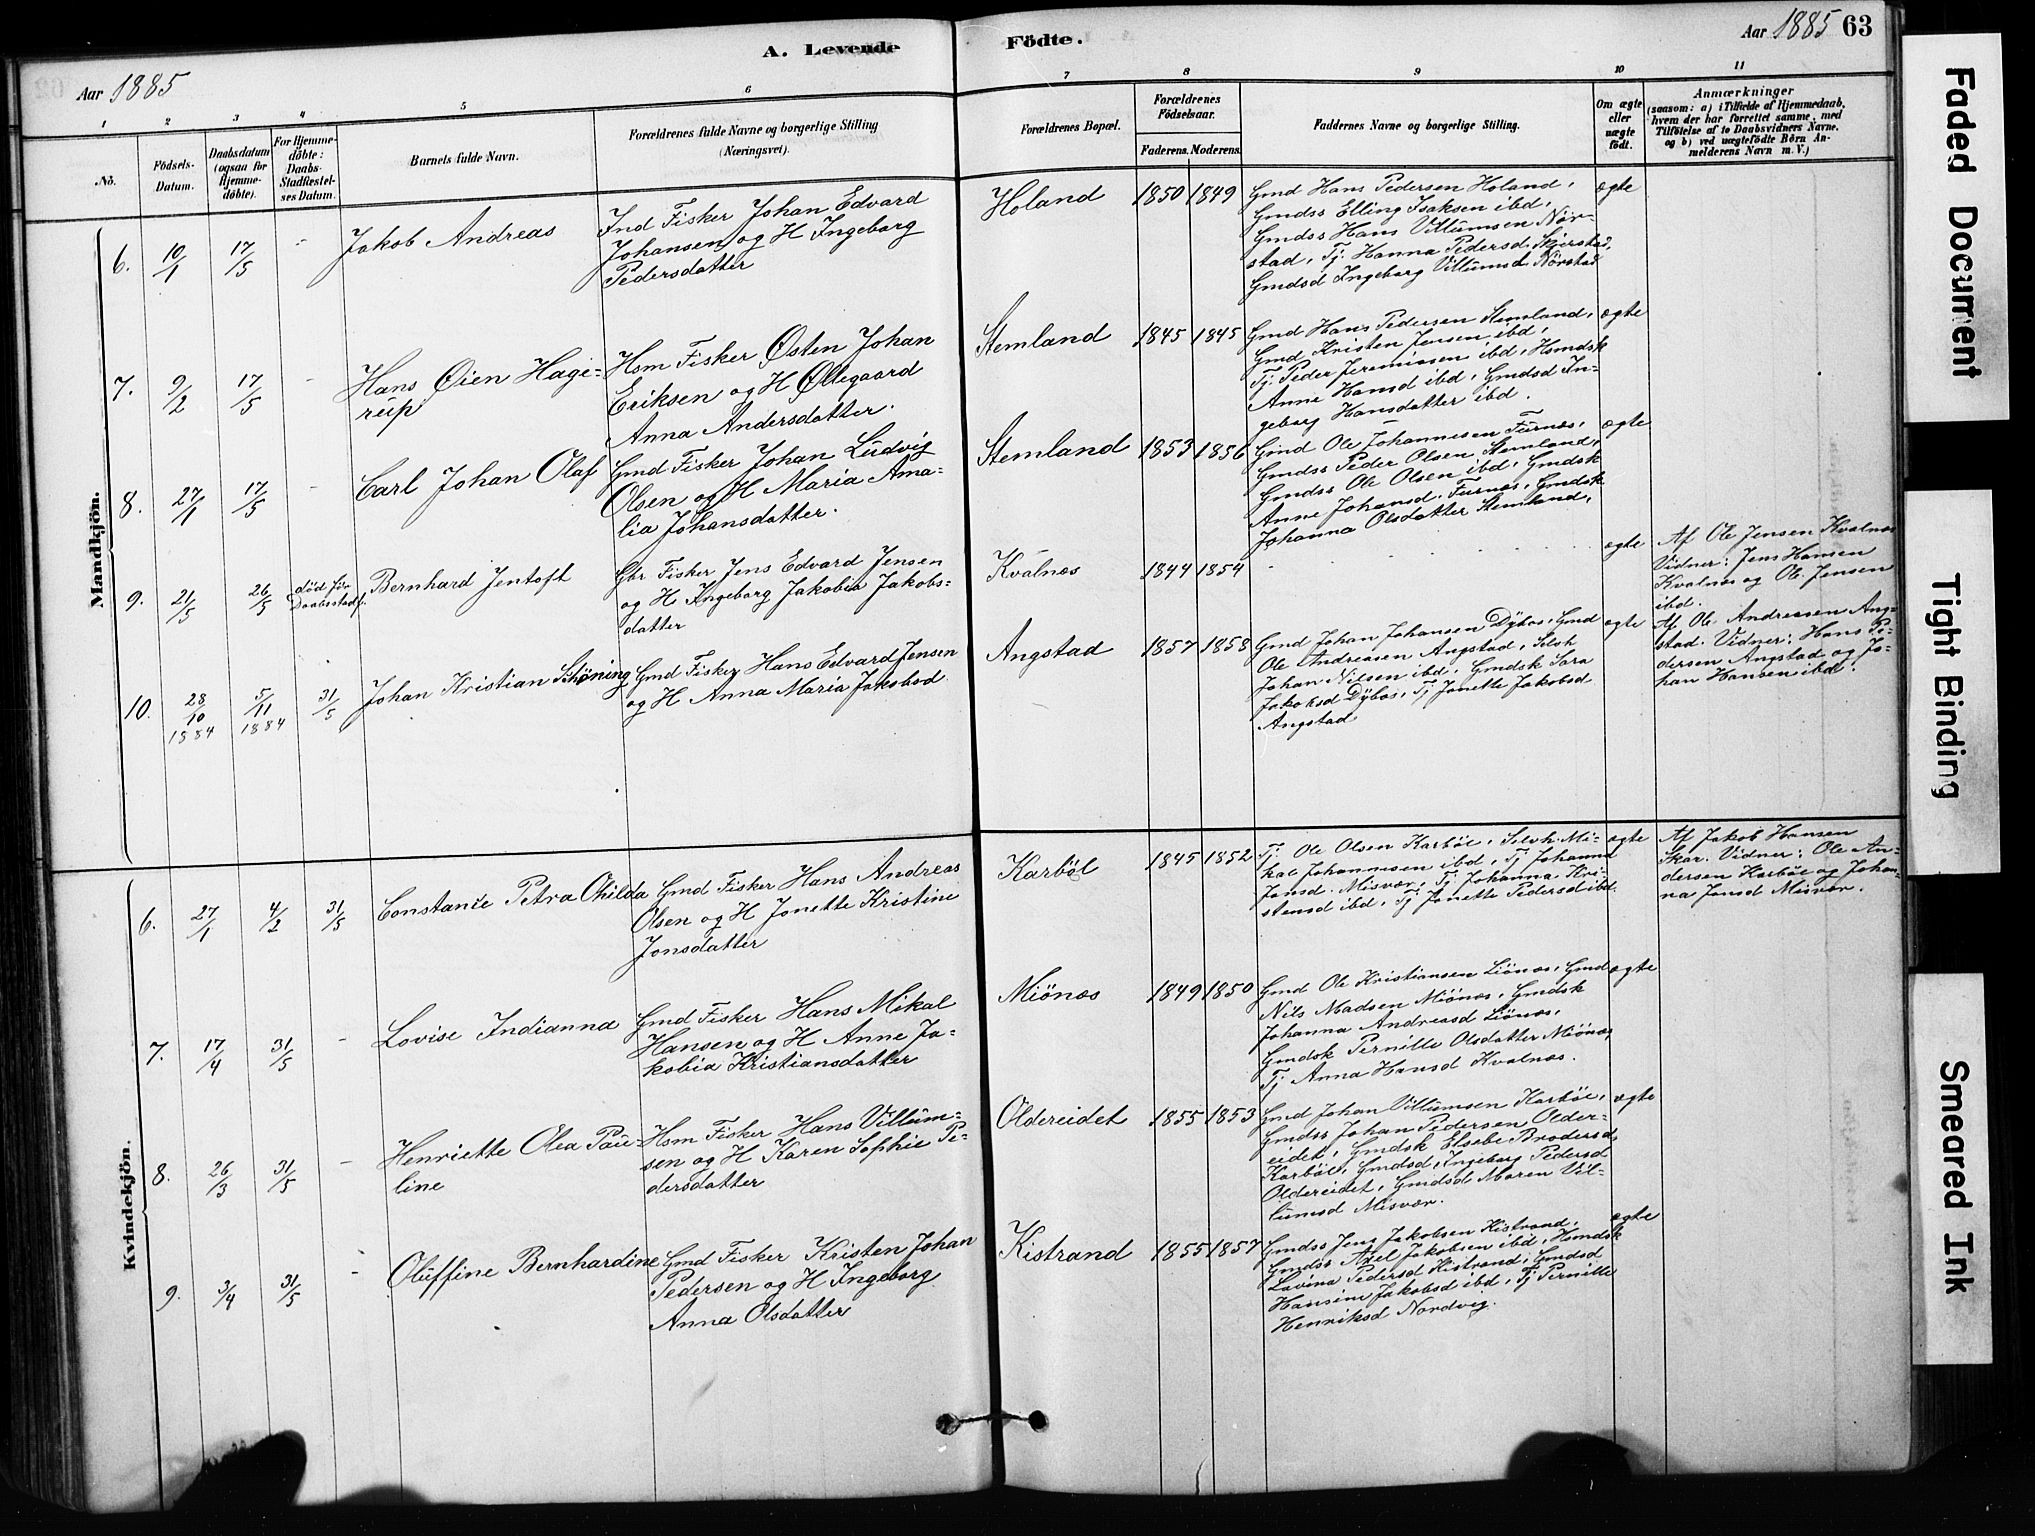 A. Levende
Aar 1885
1
2
3
4
5
6
No.
Födsels-
Datum.
Daabsdatum
(ogsaa for
Hjemme-
döbte).
For Hjemme-
döbte:
Daabs-
Stadfæstel-
ses Datum.
Barnets fulde Navn.
Forældrenes fulde Navne og borgerlige Stilling
(Næringsvei).
Mandkjön.
6. 10/1 17/5 - Jakob Andreas
Ind Fisker Johan Edvard
Johansen og H Ingeborg
Pedersdatter
7. 9/2 17/5 - Hans Øien Hage-
rup
Hsm Fisker Østen Johan
Eriksen og H Øllegaard
Anna Andersdatter.
8. 27/1 17/5 - Carl Johan Olaf
Gmd Fisker Johan Ludvig
Olsen og H Maria Ama-
lia Johansdatter.
9. 21/5 26/5 død før
Daabsstadf.
Bernhard Jentoft
Gbr Fisker Jens Edvard Jensen
og H Ingeborg Jakobia Jakobs-
datter
10. 28/10 1884 5/11 1884 31/5 Johan Kristian Schöning
Gmd Fisker Hans Edvard Jensen
og H Anna Maria Jakobsd
Kvindekjön.
6. 27/1 4/2 31/5 Constance Petra Othilda
Gmd Fisker Hans Andreas
Olsen og H Jonette Kristine
Jonsdatter
7. 17/4 31/5 - Lovise Indianna
Gmd Fisker Hans Mikal
Hansen og H Anne Ja-
kobia Kristiansdatter
8. 26/3 31/5 - Henriette Olea Pau-
line
Hsm Fisker Hans Villum-
sen og H Karen Sophie Pe-
dersdatter
9. 3/4 31/5 - Oluffine Bernhardine
Gmd Fisker Kristen Johan
Pedersen og H Ingeborg
Anna Olsdatter
Födte.
Aar 1885 63
7
8
9
10
11
Forældrenes Bopæl.
Forældrenes
Födselsaar.
Faderens. Moderens.
Faddernes Navne og borgerlige Stilling.
Om ægte
eller
uægte
födt.
Anmærkninger
(saasom: a) i Tilfælde af Hjemmedaab,
hvem der har forrettet samme, med
Tilföielse af to Daabsvidners Navne,
og b) ved uægtefödte Börn An-
melderens Navn m. V.)
Holand 1850 1849 Gmd Hans Pedersen Holand, ægte
Gmdss Elling Isaksen ibd,
Gmdss Hans Villumsen Nør-
stad, Tj. Hanna Pedersd Skjerstad,
Gmdsd Ingeborg Villumsd Nørstad
Stemland 1845 1845 Gmd Hans Pedersen Stemland, ægte
Gmd Kristen Jensen ibd,
Tj. Peder Jeremiasen ibd, Hsmdsk
Anne Hansd ibd, Gmdsd In-
geborg Hansdatter ibd.
Stemland 1853 1856 Gmd Ole Johannesen Furnæs, ægte
Gmdss Peder Olsen Stemland,
Gmdss Ole Olsen ibd, Gmdsk
Anne Johansd. Furnæs, Gmdsk
Johanna Olsdatter Stemland,
Kvalnæs 1844 1854 ægte
Af Ole Jensen Kvalnæs
Vidner: Jens Hansen
Kvalnæs og Ole Jensen
ibd.
Angstad 1857 1858 Gmd Johan Johansen Dybos, Gmd ægte
Ole Andreasen Angstad, Selvh
Johan Nilsen ibd, Gmdsk Sara
Jakobsd Dybos, Tj Jonette Jakobsd
Angstad
Af Ole Andreasen Ang-
stad. Vidner: Hans Pe-
dersen Angstad og Jo-
han Hansen ibd.
Karböl 1845 1852 Tj. Ole Olsen Karböl, Selvh Mi- ægte
kal Johannesen ibd, Tj Johanna
Jonsd. Misvær, Tj Johanna Kri-
stensd ibd, Tj Jonette Pedersd ibd.
Af Jakob Hansen
Skar. Vidner: Ole An-
dersen Karböl og Johan-
na Jonsd Misvær.
Miönæs 1849 1850 Gmd Ole Kristiansen Liönæs, Gmd ægte
Nils Madsen Miönæs, Gmdsk
Johanna Andreasd Liönæs,
Gmdsk Pernille Olsdatter Miönæs,
Tj Anna Hansd Kvalnæs.
Oldereidet 1855 1853 Gmd Johan Villumsen Karböl, ægte
Gmdss Johan Pedersen Older-
eidet, Gmdsk Elsebe Brodersd
Karböl, Gmdsd, Ingeborg Pedersd
Oldereidet, Gmdsd Maren Vil-
lumsd Misvær.
Kistrand 1855 1857 Gmdss Jens Jakobsen Kistrand, ægte
Gmdss Axel Jakobsen ibd, Hsmdsk
Lavina Pedersd Kistrand, Gmdsd
Hansine Jakobsd ibd, Tj Pernille
Henriksd Nordvig.
Faded Document
Tight Binding
Smeared Ink